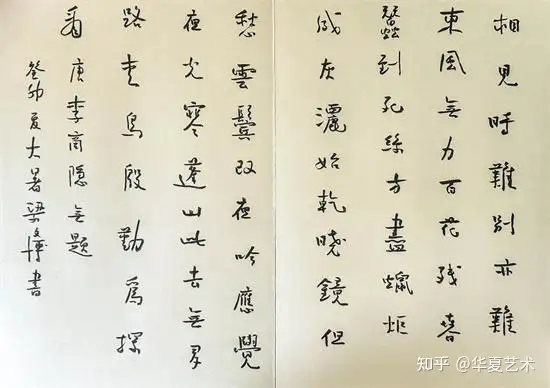 相見時難別亦難
東風無力百花殘春
蠶到死絲方盡爉炬
成灰灑始乾曉鏡但
愁雲鬢改夜吟應覺
夜光寒蓬山此去無多
路青鳥殷勤爲探
看 唐李商隱無題
癸卯夏大暑梁博書
知乎 @华夏艺术